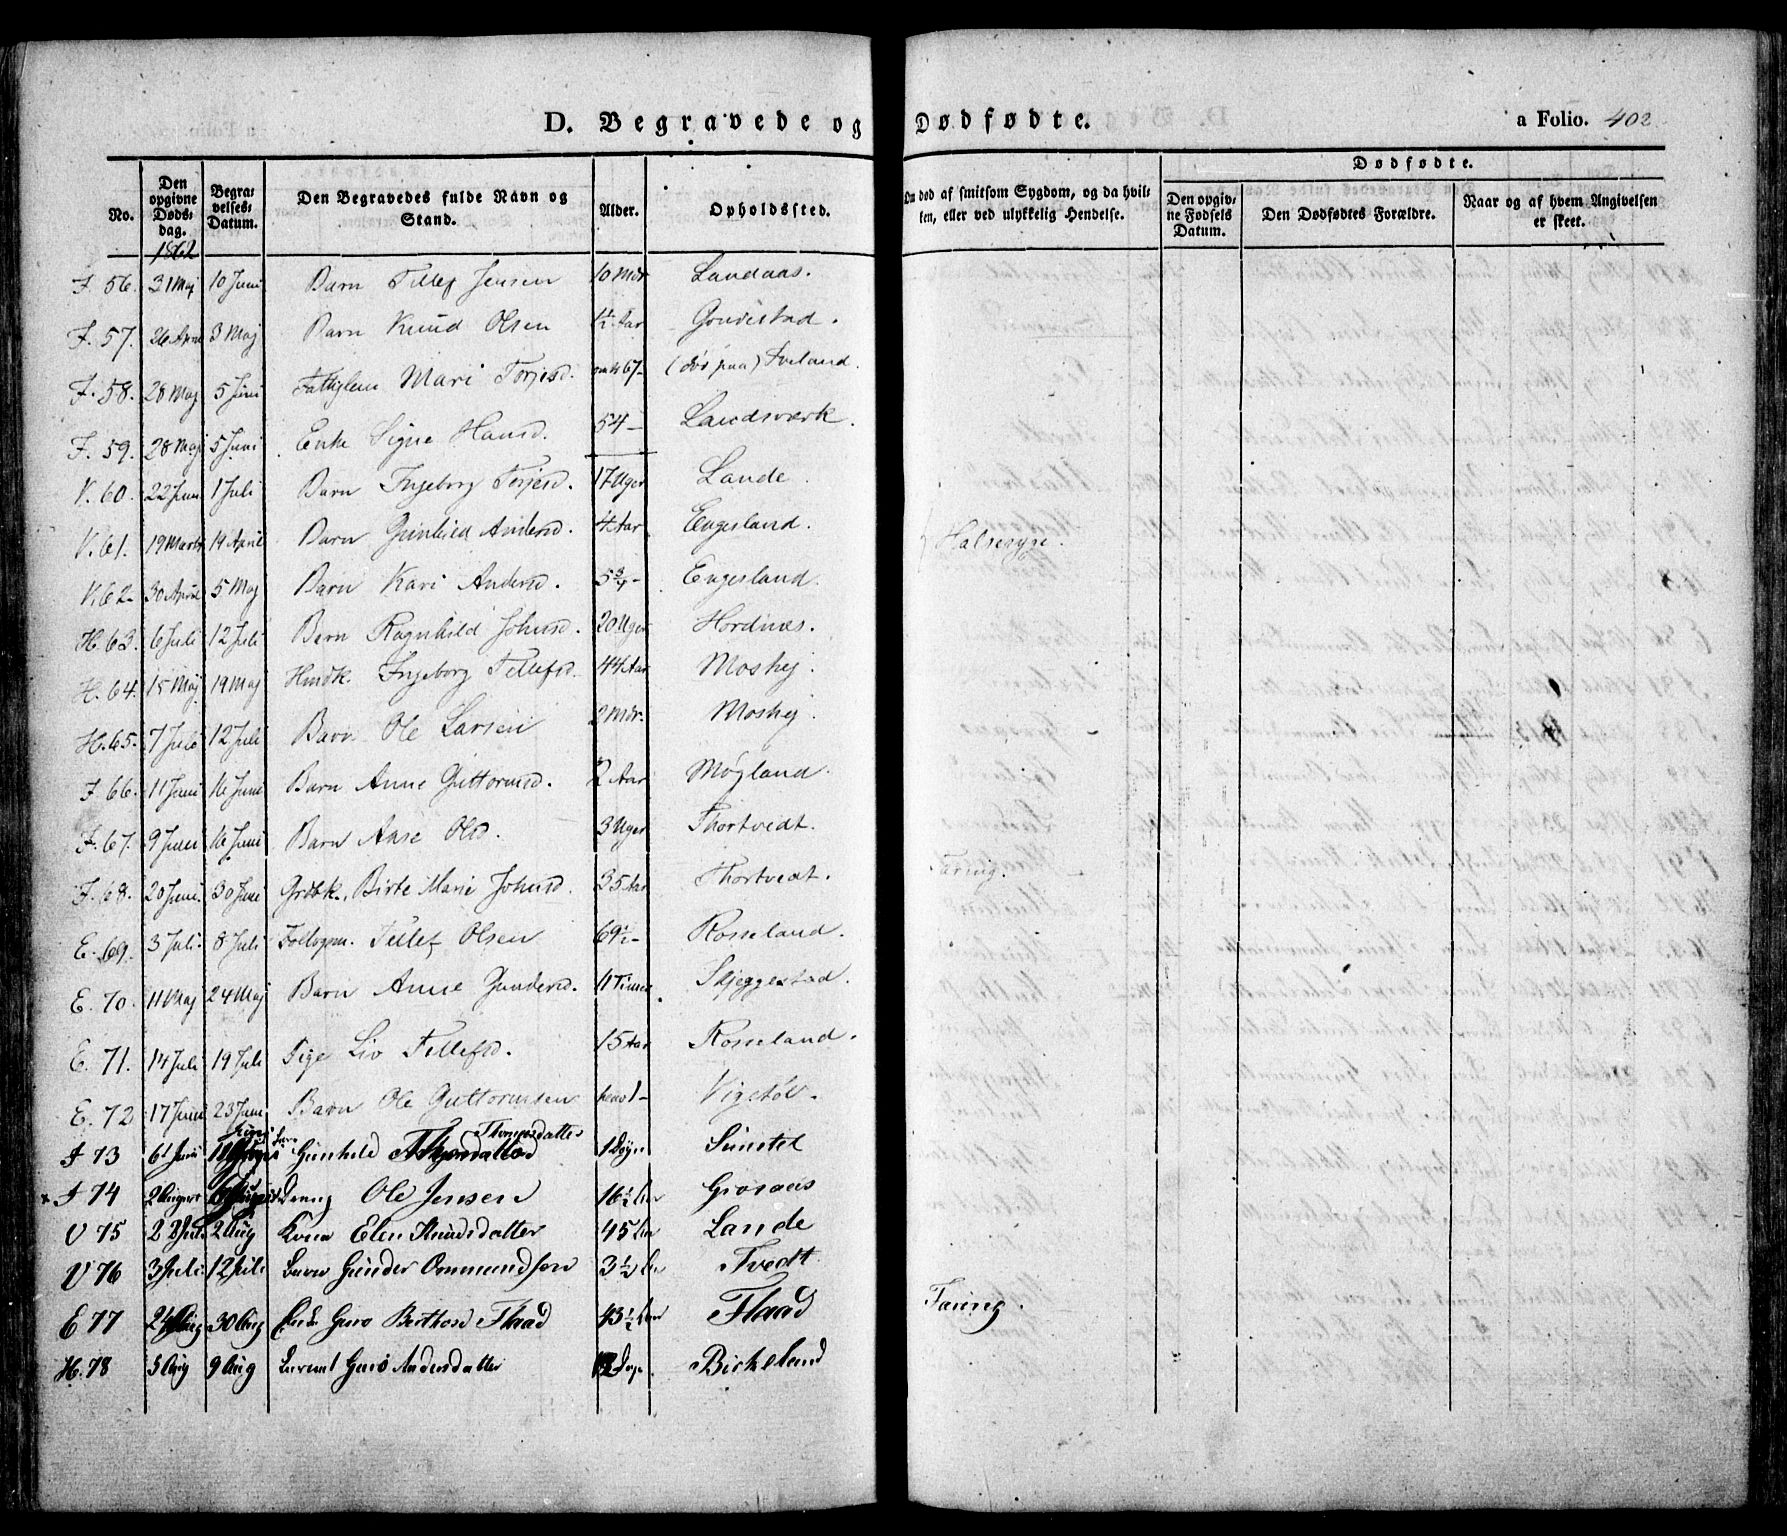 D. Begravede og Dødfødte. a Folio. 402
No. | Den opgivne Dødsdag. | Begravelses-Datum. | Den Begravedes fulde Navn og Stand. | Alder. | Opholdssted. | Om død af smitsom Sygdom, og da hvilken, eller ved ulykkelig Hendelse. | Dødfødte. Den opgivne Fødsels Datum. | Den Dødfødtes Forældre. | Naar og af hvem Angivelsen er skeet.
1862
F. 56. 31 Maj 10 Juni Barn Tellef Jensen 10 Mdr Landaas.
F. 57. 26 April 3 Maj Barn Knud Olsen 1½ Aar Goudestad.
F. 58. 28 Maj 5 Juni Fattiglem Mari Torjesd. omtr 67 - (død paa) Fveland.
F. 59. 28 Maj 5 Juni Enke Signe Hansd. 54 - Landsværk.
V. 60. 22 Juni 1 Juli Barn Ingeborg Torjesd. 17 Uger Lande.
V. 61. 19 Marts 19 April Barn Gunhild Andersd. 4 Aar Engesland. Halsesyge.
V. 62. 30 April 5 Maj Barn Kari Andersd. 5¾ - Engesland.
H. 63. 6 Juli 12 Juli Barn Ragnhild Johnsd. 20 Uger Hordnæs.
H. 64. 15 Maj 19 Maj Hmdk. Ingeborg Tellefsd. 44 Aar Moshej.
H. 65. 7 Juli 12 Juli Barn Ole Larsen 2 Mdr. Moshej.
F. 66. 11 Juni 16 Juni Barn Anne Guttormsd. 2 Aar Møgland.
F. 67. 9 Juni 16 Juni Barn Anse Olsd. 3 Uger Thortvedt.
F. 68. 20 Juni. 30 Juni Grdbk. Birte Marie Johnsd. 35 Aar Thortvedt. Tæring.
E. 69. 3 Juli. 8 Juli Follogsm. Tellef Olsen 69½ - Rosseland.
E. 70. 11 Maj 24 Maj Barn Anne Gundersd. 11 Timer Skjeggestad.
E. 71. 14 Juli 19 Juli Pige Liv Tellefsd. 15 Aar Rosseland.
E. 72 17 Juni 23 Juni Barn Ole Guttormsen henv 1 - Vigstøl.
F 73 6 Juni Juni Barn Gunhild Thomesdatter 1 Døgn Sunstel
F 74 2 August Dreng Ole Jensen 16½ Aar Grosaas
V 75 22 Juli 2 Aug Kone Elen Knudsdatter 45 Aar Lande
V 76 3 Juli 12 Juli Barn Gunder Ommundsen 3½ Aar Tvedt
E 77 24 Aug 30 Aug Guro Berthesd Flaad 43½ Aar Flaad Tæring.
H. 78 5 Aug 9 Aug Barnet Guro Andersdatter 12 Dage Birkeland